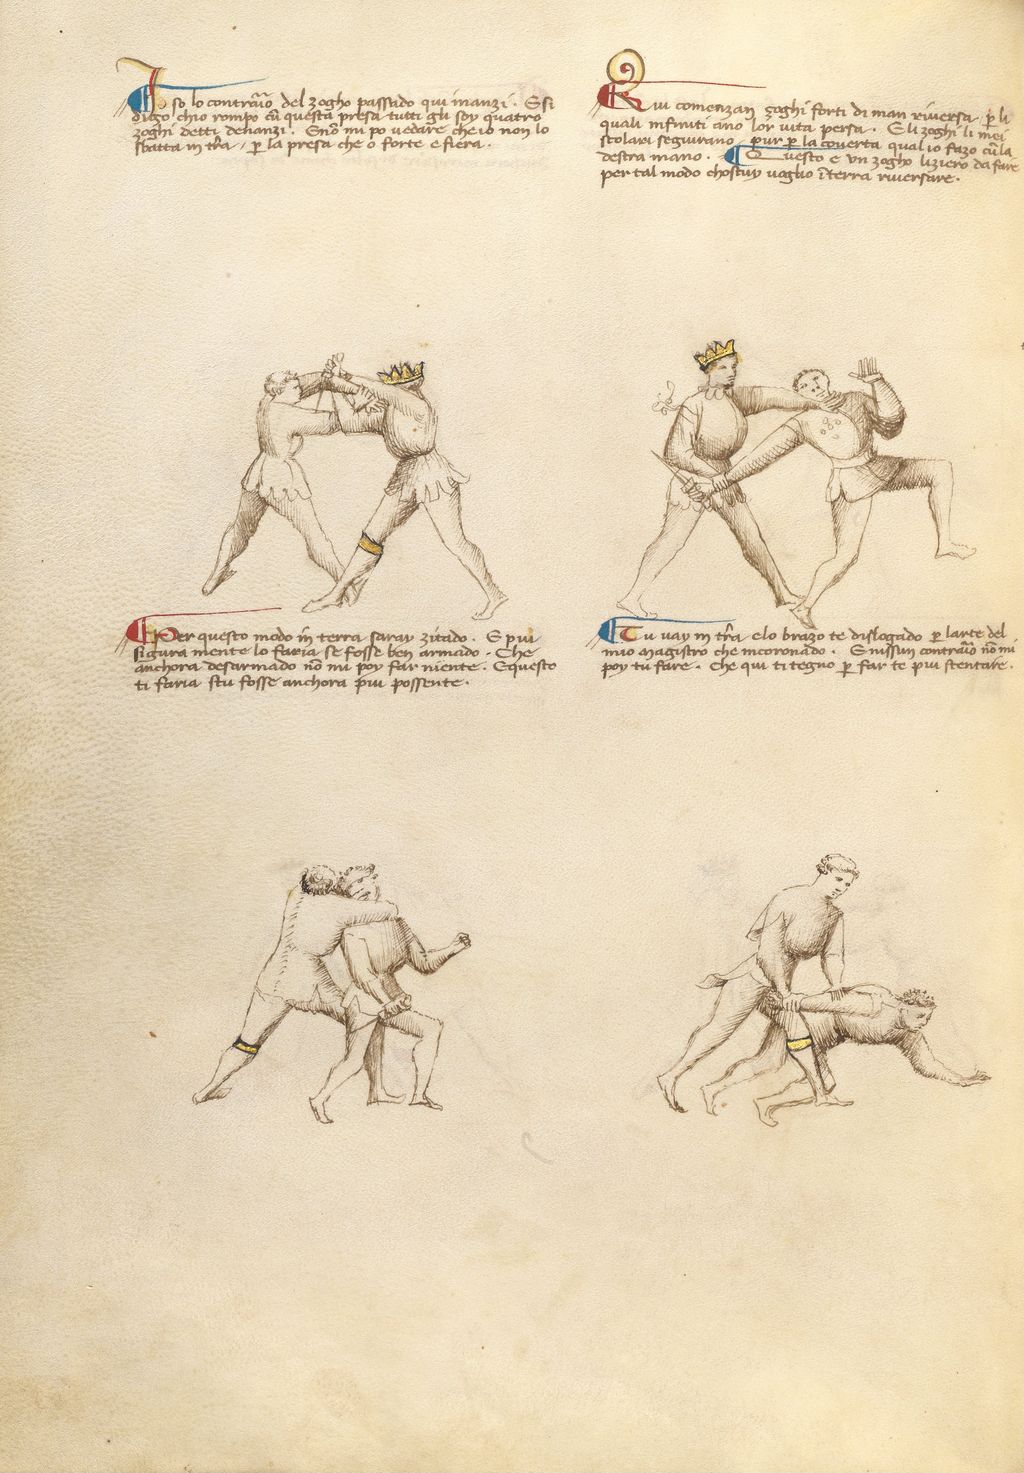 Io so lo contrario del zogho passado qui inanzi. E si
digo ch'io rompo cum questa presa tutti gli soy quatro
zoghi detti denanzi. E no mi po vedare che io non lo
sbatta in tera, per la presa che o forte e fiera.
Qui comenzan zoghi forti di man riversa, per li
quali infiniti ano lor vita persa. E li zoghi li miei
scolari seguirano, pur per la coverta qual io fazo cum la
destra mano. Questo e un zogho liziero da fare
per tal modo chostuy voglio in terra riversare.
Per questo modo in terra saray zitado. E piu
siguramente lo faria se fosse ben armado. Che
anchora desarmado non mi poy far niente. E questo
ti faria stu fosse anchora piu possente.
Tu vay in tera e lo brazo te dislogado per l'arte del
mio magistro che incoronado. E nissun contrario non mi
poy tu fare. Che qui ti tegno per farte piu stentare.